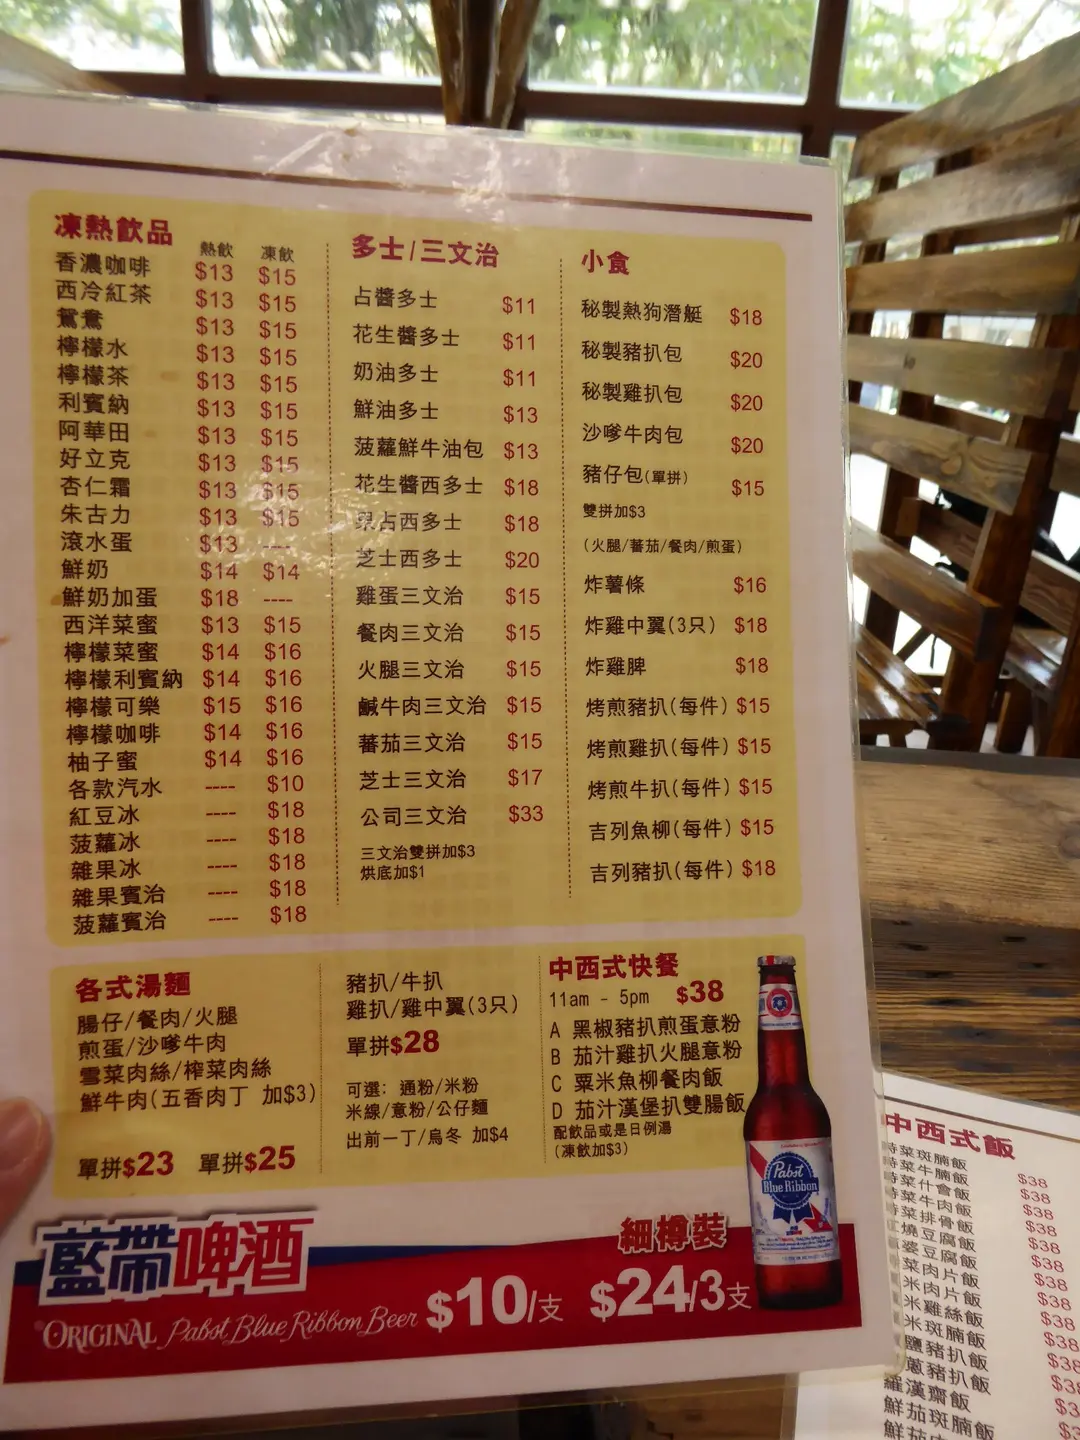 凍熱飲品
熱飲 凍飲
香濃咖啡 $13 $15
西冷紅茶 $13 $15
鴛鴦 $13 $15
檸檬水 $13 $15
檸檬茶 $13 $15
利賓納 $13 $15
阿華田 $13 $15
好立克 $13 $15
杏仁霜 $13 $15
朱古力 $13 $15
滾水蛋 $13 ----
鮮奶 $14 $14
鮮奶加蛋 $18 ----
西洋菜蜜 $13 $15
檸檬菜蜜 $14 $16
檸檬利賓納 $14 $16
檸檬可樂 $15 $16
檸檬咖啡 $14 $16
柚子蜜 $14 $16
各款汽水 ---- $10
紅豆冰 ---- $18
菠蘿冰 ---- $18
雜果冰 ---- $18
雜果賓治 ---- $18
菠蘿賓治 ---- $18
多士/三文治
占醬多士 $11
花生醬多士 $11
奶油多士 $11
鮮油多士 $13
菠蘿鮮牛油包 $13
花生醬西多士 $18
果占西多士 $18
芝士西多士 $20
雞蛋三文治 $15
餐肉三文治 $15
火腿三文治 $15
鹹牛肉三文治 $15
蕃茄三文治 $15
芝士三文治 $17
公司三文治 $33
三文治雙拼加$3
烘底加$1
小食
秘製熱狗潛艇 $18
秘製豬扒包 $20
秘製雞扒包 $20
沙嗲牛肉包 $20
豬仔包(單拼) $15
雙拼加$3
(火腿/蕃茄/餐肉/煎蛋)
炸薯條 $16
炸雞中翼(3只) $18
炸雞脾 $18
烤煎豬扒(每件) $15
烤煎雞扒(每件) $15
烤煎牛扒(每件) $15
吉列魚柳(每件) $15
吉列豬扒(每件) $18
各式湯麵
腸仔/餐肉/火腿
煎蛋/沙嗲牛肉
雪菜肉絲/榨菜肉絲
鮮牛肉(五香肉丁 加$3)
單拼$23 單拼$25
豬扒/牛扒
雞扒/雞中翼(3只)
單拼$28
可選: 通粉/米粉
米線/意粉/公仔麵
出前一丁/烏冬 加$4
中西式快餐
11am - 5pm $38
A 黑椒豬扒煎蛋意粉
B 茄汁雞扒火腿意粉
C 粟米魚柳餐肉飯
D 茄汁漢堡扒雙腸飯
配飲品或是日例湯
(凍飲加$3)
Pabst
Blue Ribbon
藍帶啤酒
細樽裝
ORIGINAL Pabst Blue Ribbon Beer
$10/支 $24/3支
中西式飯
時菜斑腩飯 $38
時菜牛腩飯 $38
時菜什會飯 $38
時菜牛肉飯 $38
時菜排骨飯 $38
紅燒豆腐飯 $38
婆豆腐飯 $38
菜肉片飯 $38
米肉片飯 $38
米雞絲飯 $38
米斑腩飯 $38
鹽豬扒飯
蔥豬扒飯
羅漢齋飯
鮮茄斑腩飯
鮮茄